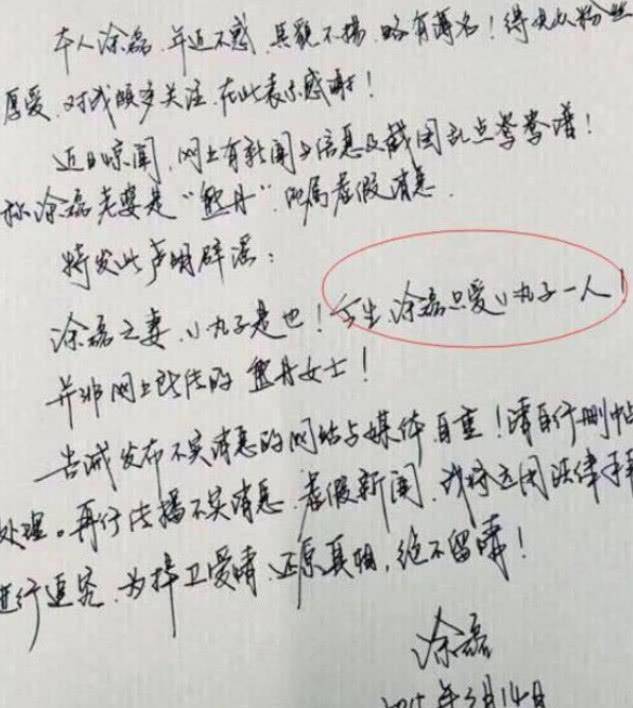 本人涂磊，年近不惑，其貌不扬，略有薄名！得大众粉丝
厚爱，对我颇多关注，在此表示感谢！
近日惊闻，网上有新闻与信息及截图乱点鸳鸯谱！
称涂磊老婆是“敖丹”，纯属虚假消息。
特发此声明辟谣：
涂磊之妻，小丸子是也！今生，涂磊只爱小丸子一人！
并非网上所传的敖丹女士！
告诫发布不实消息的网站与媒体，自重！请自行删帖
处理。再行传播不实消息，虚假新闻，我将运用法律手
进行追究，为捍卫爱情，还原真相，绝不留情！
涂磊
年3月14日